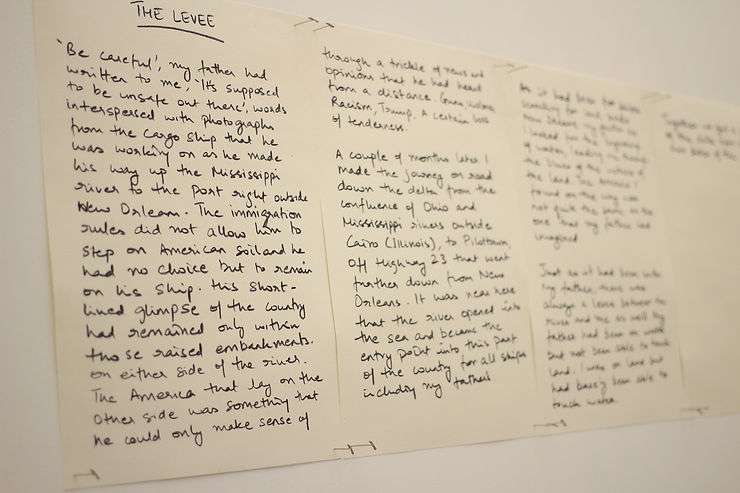 THE LEVEE
'Be careful', my father had
written to me, 'It's supposed
to be unsafe out there', words
interspersed with photographs
from the cargo ship that he
was working on as he made
his way up the Mississippi
river to the port right outside
New Orleans. The immigration
rules did not allow him to
step on American soil and he
had no choice but to remain
on his ship. His short-
lived glimpse of the country
had remained only within
those raised embankments
on either side of the river.
The America that lay on the
other side was something that
he could only make sense of
through a trickle of news and
opinions that he had heard
from a distance. Guns, Violence
Racism, Trump. A certain loss
of tenderness.
A couple of months later I
made the journey on road
down the delta from the
confluence of Ohio and
Mississippi rivers outside
Cairo (Illinois), to Pilottown,
off Highway 23 that went
further down from New
Orleans. It was near here
that the river opened into
the sea and became the
entry point into this part
of the country for all ships
including my father's
As it had been for
looked for the beginning
of water,
the land. The America I
found on the way was
not quite the same as the
one that my father had
imagined
Just as it had been with
my father, there was
always a levee between the
river and me as well. My
father had been on water
but not been able to touch
land. I was on land but
had barely been able to
touch water.
Together
of this